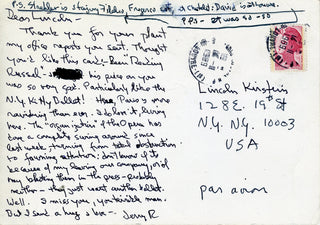 P.S. Struhler is staying Fiddle, Eugence at a chalet: Daniel is at home.
P.P.S. It was so-so
Dear Lincoln -
Thank you for your plant
my office reports you sent. Thought
you'd like this card. Been Reading
Russel - his piece on you
was so very good. Particularly like the
N.Y. Kitty Ballet! Here, Paris is more
ravishing than ever. I adore it, living
here. The "organization" of the Opera has
done a complete swing around since
last week, turning from total obstruction
to fawning attention; don't know if it's
because of my leaving our company, or of
my blasting them in the press - probably
neither - they just want another ballet.
Well. I miss you, you terrible man.
But I send a hug & love - Jerry R
Lincoln Kirstein
128 E. 19th St
N.Y. N.Y. 10003
USA
par avion